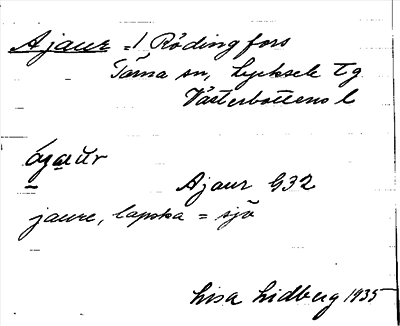 Ajaur = 1 Rödingfors
Tärna sn, Lycksele tg
Västerbottens l
Ajaur G32
jaure, lapska = sjö
Lisa Lidberg 1935